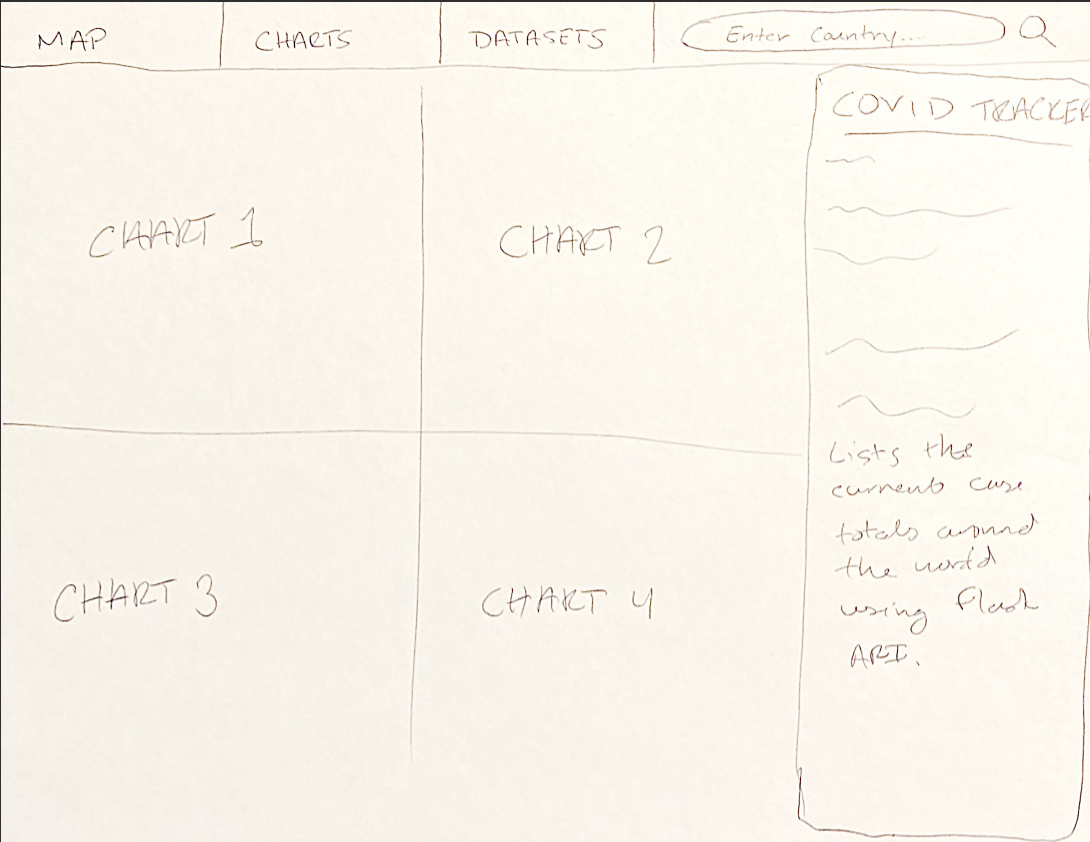 MAP
CHARTS
DATASETS
Enter Country...
COVID TRACKER
CHART 1
CHART 2
CHART 3
CHART 4
Lists the
current case
totals around
the world
using Flask
API.